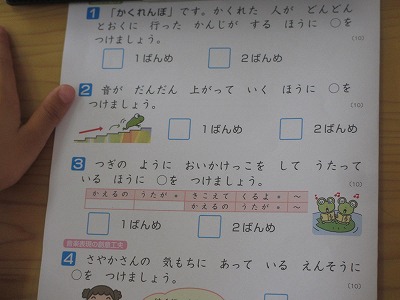 1 「かくれんぼ」です。かくれた 人が どんどん
とおくに 行った かんじが する ほうに ○を
つけましょう。
(10)
1ばんめ 2ばんめ
2 音が だんだん 上がって いく ほうに ○を
つけましょう。
(10)
1ばんめ 2ばんめ
3 つぎの ように おいかけっこを して うたって
いる ほうに ○を つけましょう。
(10)
かえるの うたが。 きこえて くるよ。〜
かえるの うたが。〜
1ばんめ 2ばんめ
4 さやかさんの 気もちに あって いる えんそうに
○を つけましょう。
(10)